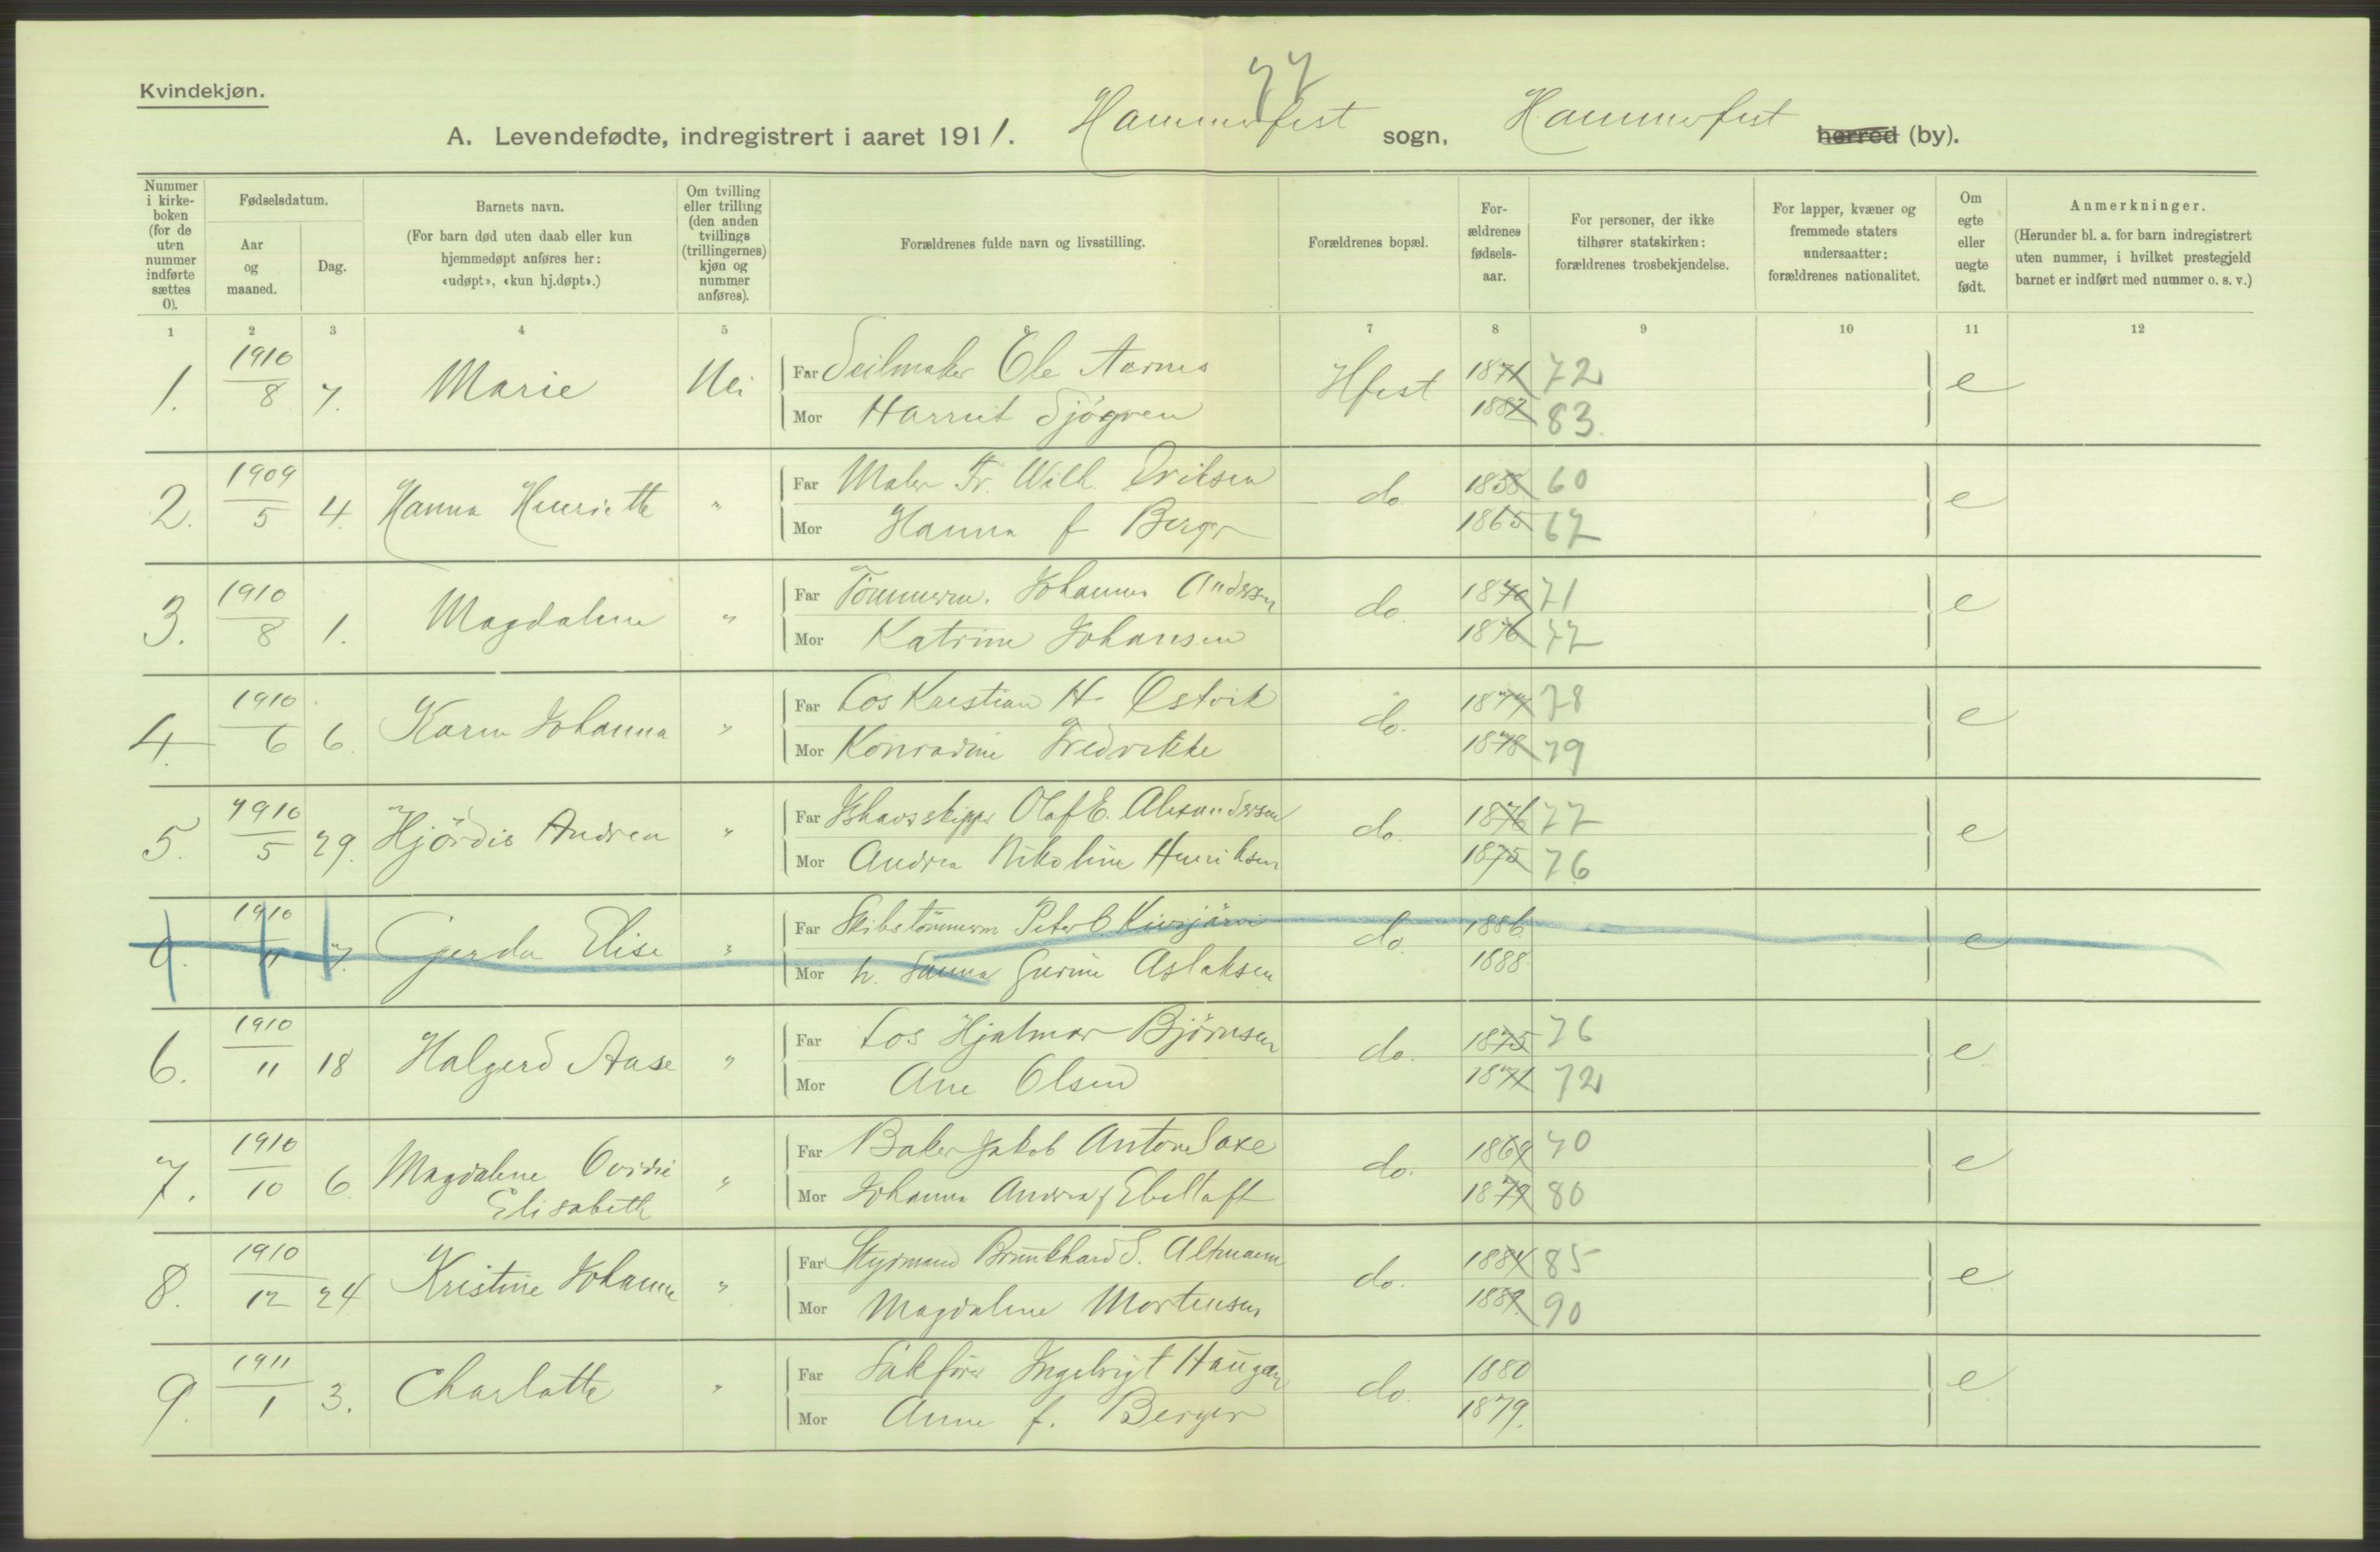 77
Kvindekjøn.
A. Levendefødte, indregistrert i aaret 1911. Hammerfest sogn, Hammerfest herred (by).
Nummer i kirkeboken (for de uten nummer indførte sættes 0).
Fødselsdatum.
Aar og maaned.
Dag.
Barnets navn.
(For barn død uten daab eller kun hjemmedøpt anføres her: «udøpt», «kun hj.døpt».)
Om tvilling eller trilling (den anden tvillings (trillingernes) kjøn og nummer anføres).
Forældrenes fulde navn og livsstilling.
Forældrenes bopæl.
Forældrenes fødselsaar.
For personer, der ikke tilhører statskirken: forældrenes trosbekjendelse.
For lapper, kvæner og fremmede staters undersaatter: forældrenes nationalitet.
Om egte eller uegte født.
Anmerkninger.
(Herunder bl. a. for barn indregistrert uten nummer, i hvilket prestegjeld barnet er indført med nummer o. s. v.)
1 2 3 4 5 6 7 8 9 10 11 12
1. 1910/8 7. Marie Nei Far Seilmaker Ole Aarnes Hfest 1871 72 e
Mor Harriet Sjögren 1882 83
2. 1909/5 4. Hanna Henriette " Far Maler Fr. Wilh. Eriksen do. 1858 60 e
Mor Hanna f Berger 1865 67
3. 1910/8 1. Magdalene " Far Tömmerm. Johannes Andersen do. 1870 71 e
Mor Katrine Johansen 1876 77
4. 1910/6 6. Karen Johanna " Far Los Kristian H Østvik do. 1877 78 e
Mor Konradine Fredrikke 1878 79
5. 1910/5 29. Hjördis Andrea " Far Ishavsskipper Olaf E. Alexandersen do. 1876 77 e
Mor Andrea Nikoline Henriksen 1875 76
0. 1910/11 7. Gjerda Elise " Far Skibstömmerm Peter Kivijärvi do. 1886 e
Mor h. Sanna Gurine Aslaksen 1888
6. 1910/11 18 Halgerd Aase " Far Los Hjalmar Björnsen do. 1875 76 e
Mor Ane Olsen 1871 72
7. 1910/10 6 Magdalene Ovidie " Far Baker Jakob Anton Saxe do. 1869 70 e
Elisabeth Mor Johanna Andrea f Ebeltoft 1879 80
8. 1910/12 24 Kristine Johanne " Far Styrmand S. Altmann do. 1884 85 e
Mor Magdalene Mortensen 1889. 90
9. 1911/1 3. Charlotte " Far Sakförer Ingebrigt Haugan do. 1880 e
Mor Anne f. Berger 1879.